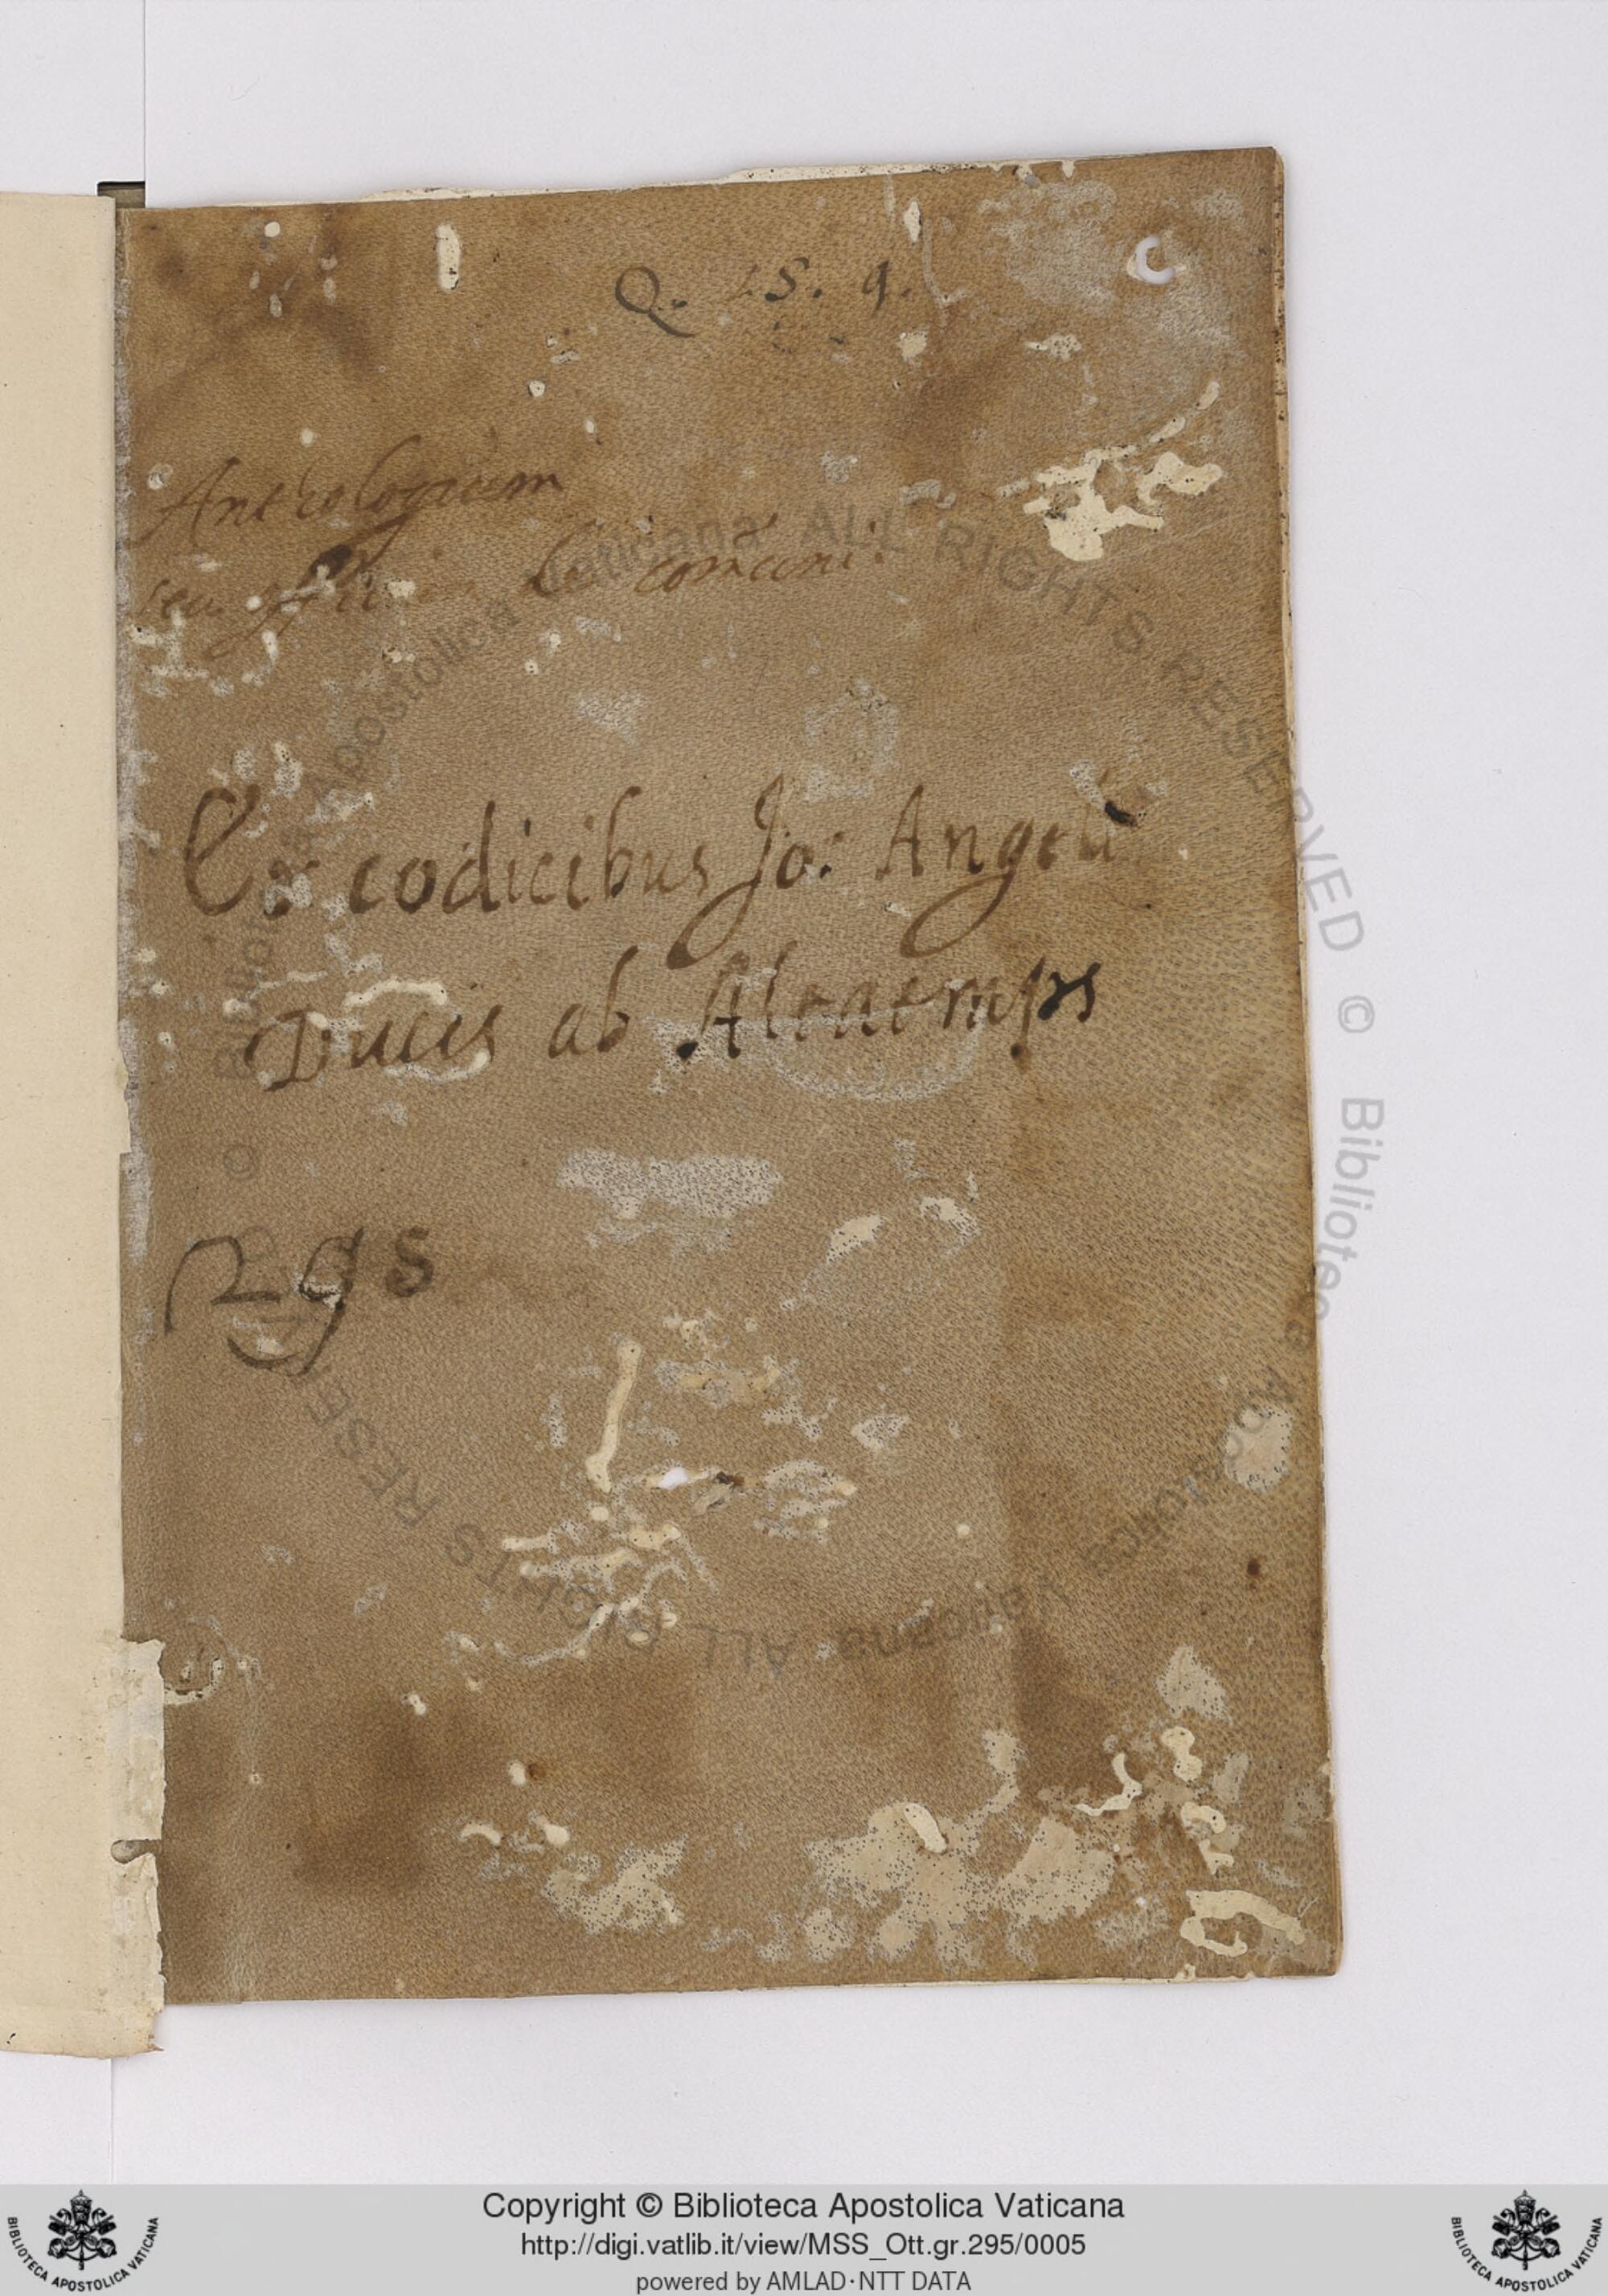 Q. 15. 9.
Anthologium
seu Officia de comuni
Ex codicibus Jo: Angeli
Ducis ab Altaemps
© Biblioteca Apostolica Vaticana ALL RIGHTS RESERVED © Biblioteca Apostolica Vaticana ALL RIGHTS RESE
Copyright © Biblioteca Apostolica Vaticana
http://digi.vatlib.it/view/MSS_Ott.gr.295/0005
powered by AMLAD·NTT DATA
BIBLIOTECA APOSTOLICA VATICANA
BIBLIOTECA APOSTOLICA VATICANA